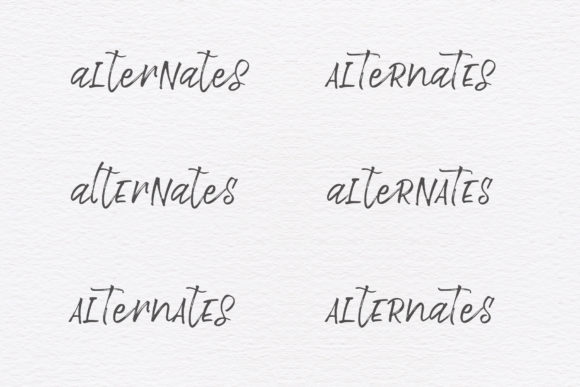 aLterNateS ALTerNaTES
altErNateS aLteRNATES
ALTernATES ALTERnateS